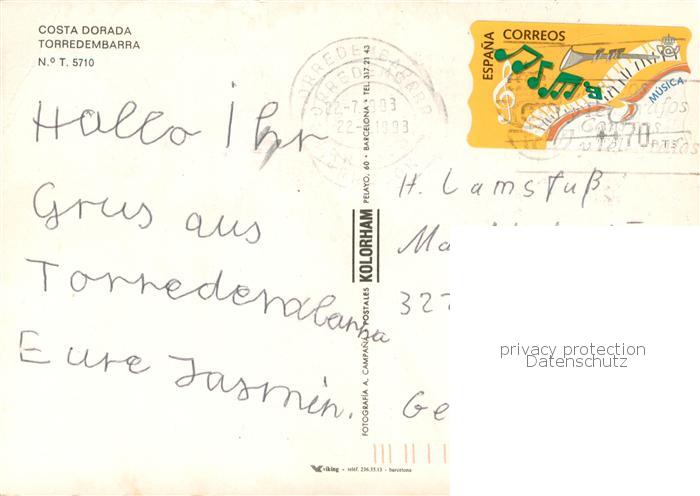 COSTA DORADA
TORREDEMBARRA
N.º T. 5710
Hallo Ihr
Grus aus
Torrederabarra
Eure Jasmin.
FOTOGRAFIA A. CAMPAÑÁ POSTALES KOLORHAM PELAYO, 60 • BARCELONA • TEL. 317 21 43
viking • teléf. 236.35.13 • barcelona
ESPAÑA CORREOS
MÚSICA
PTS
22-7 1993
H. Lamsfuß
Ma
327
Ge
privacy protection
Datenschutz